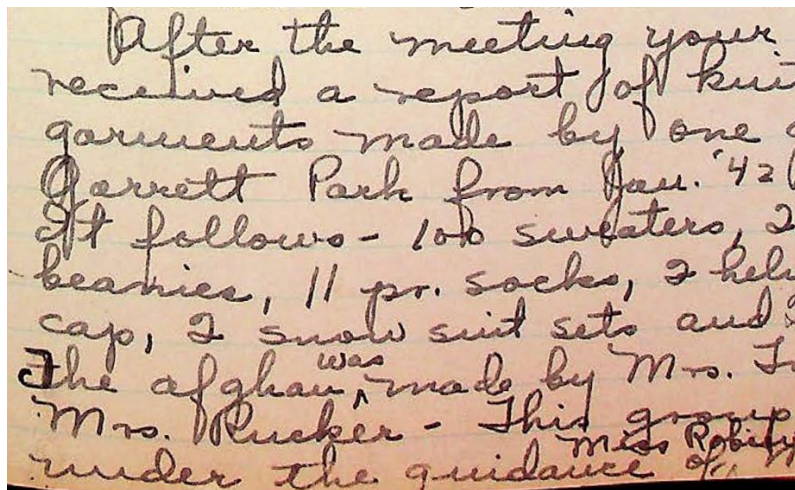 After the meeting your
received a report of knit
garments made by one
Garrett Park from Jan. '42
It follows - 100 sweaters, 2
beanies, 11 pr. socks, 2
cap, 2 snow suit sets and
The afghan was made by Mrs.
Mrs. Rucker - This group
Miss
under the guidance of